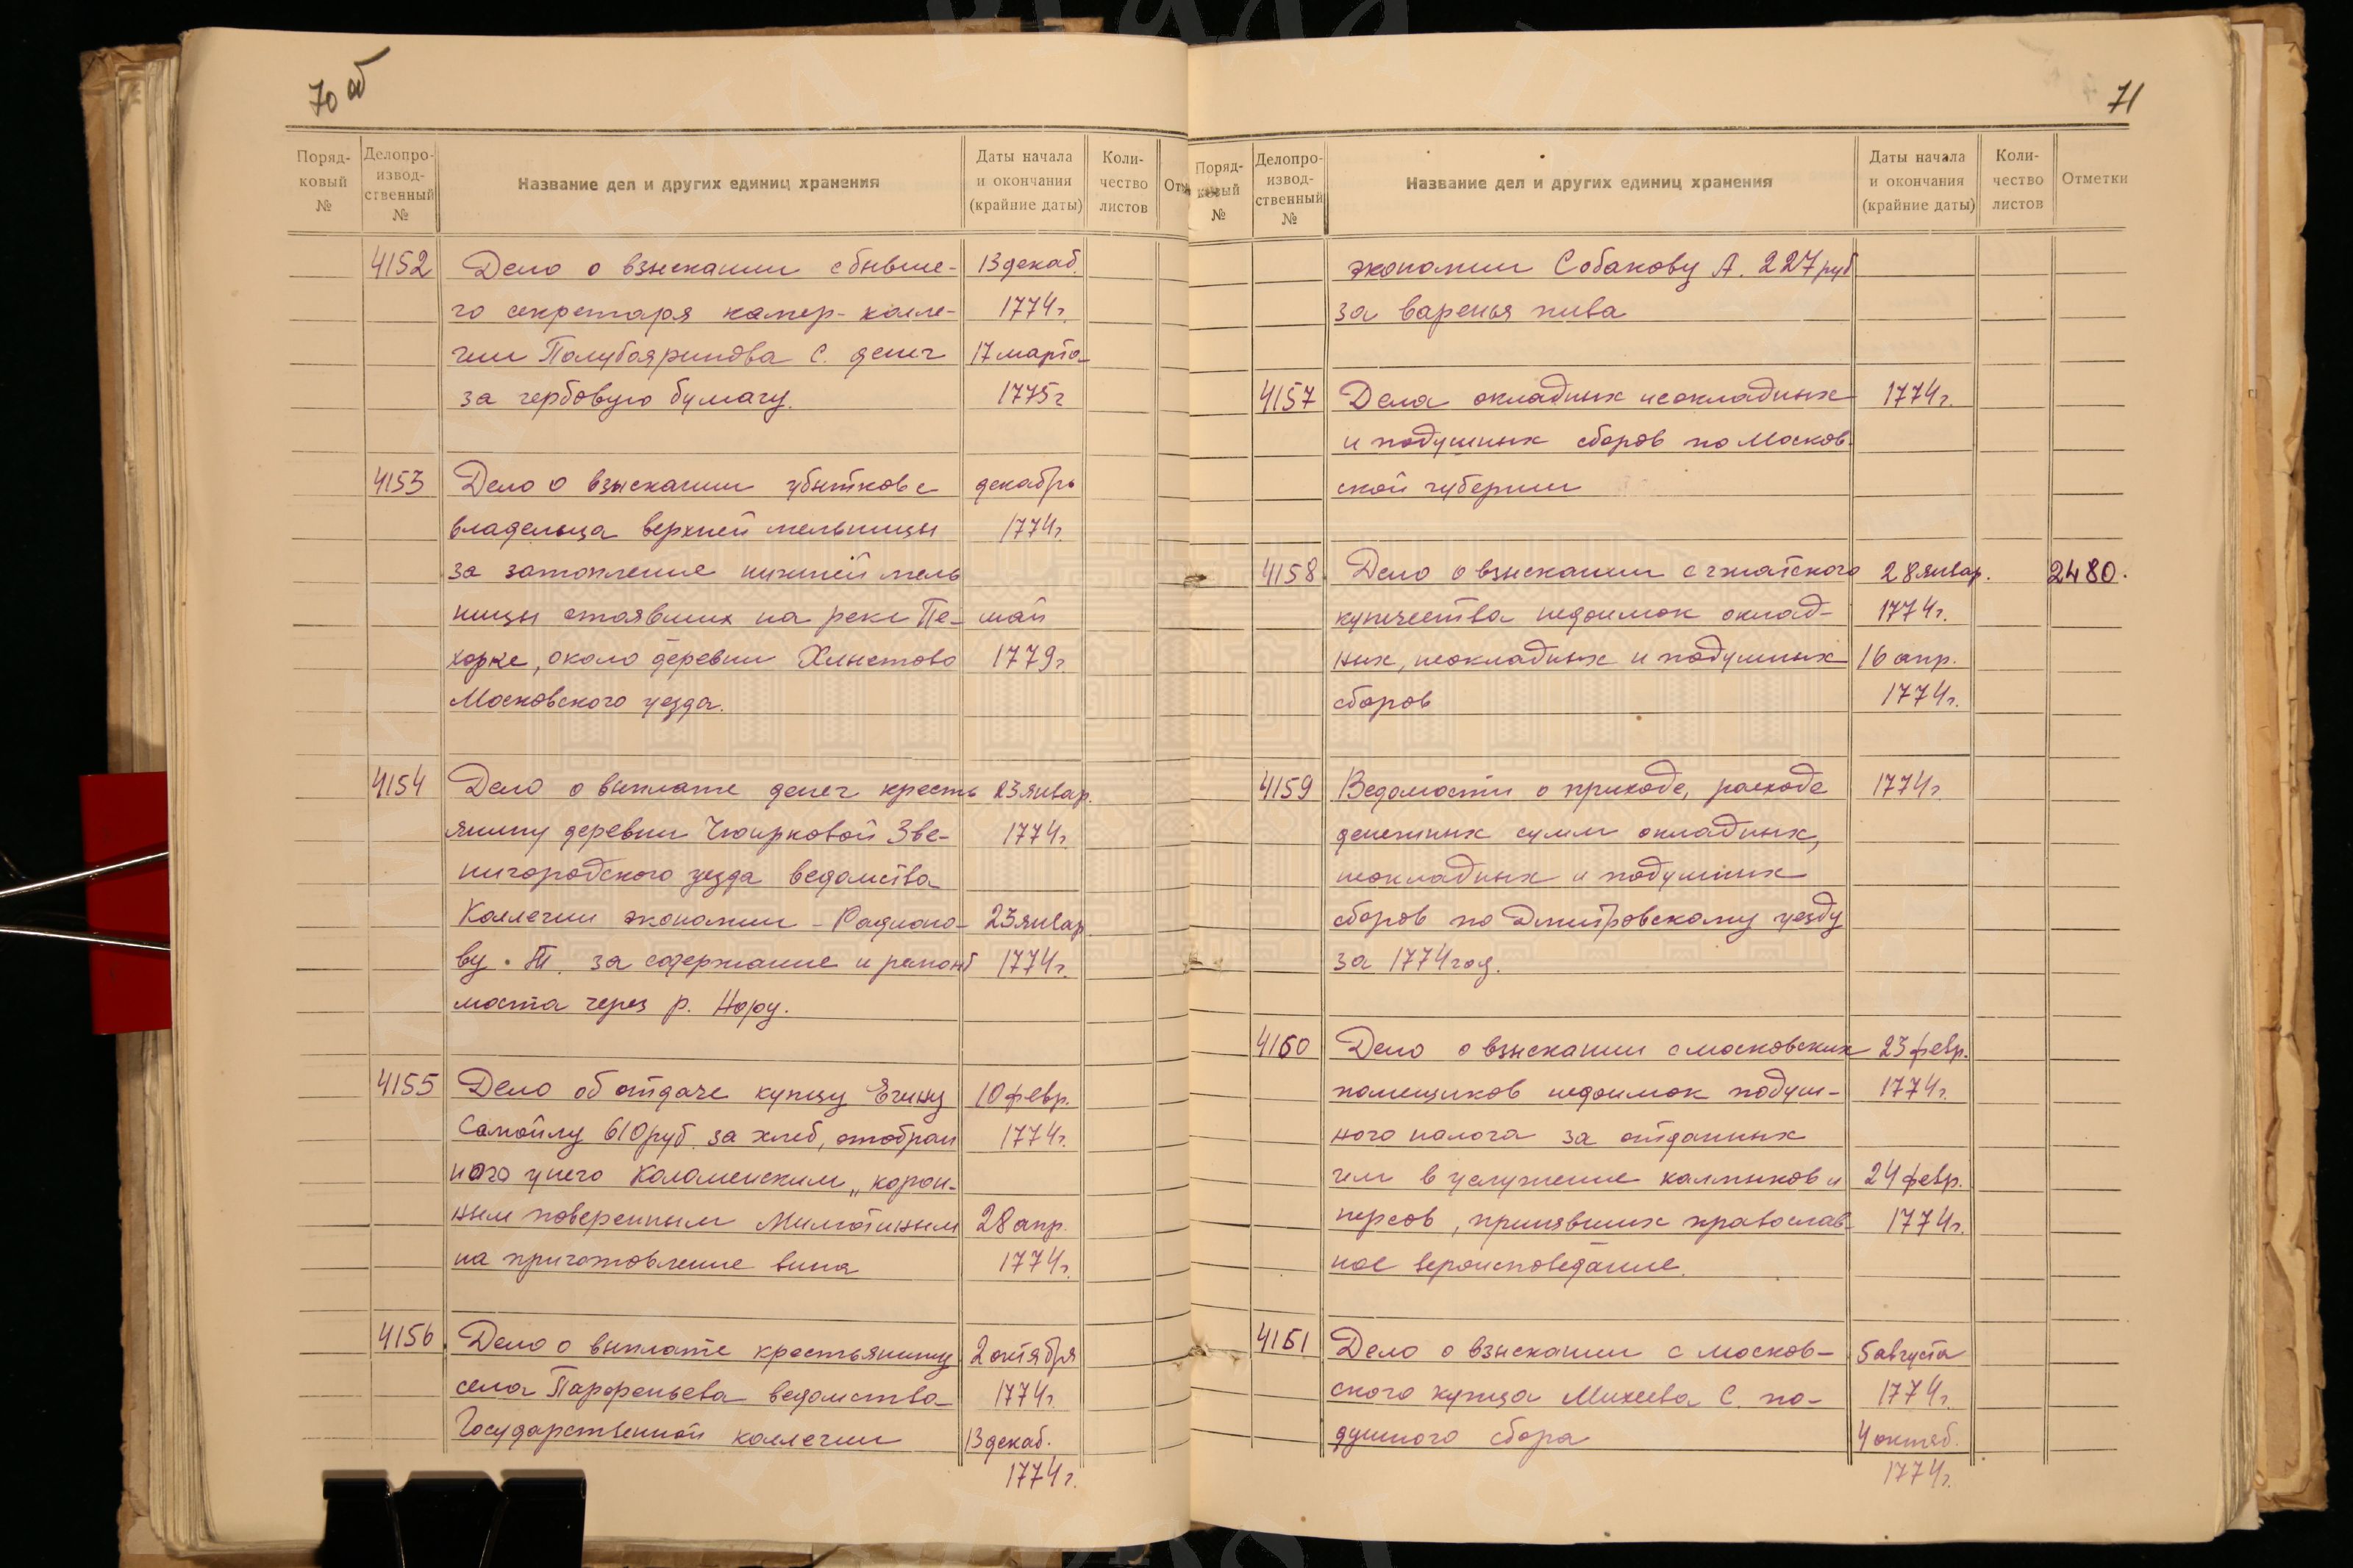 70 об
Поряд-
ковый
№
Делопро-
извод-
ственный
№
Название дел и других единиц хранения
Даты начала
и окончания
(крайние даты)
Коли-
чество
листов
4152 Дело о взыскании с бывше- 13 декаб.
го секретаря камер-колле- 1774 г.
гии Полубояринова С. денег 17 марта
за гербовую бумагу. 1775 г
4153 Дело о взыскании убытков с декабрь
владельца верхней мельницы 1774 г.
за затопление нижней мель
ницы стоявших на реке Пе- май
хорке, около деревни Хлыстово 1779 г.
Московского уезда.
4154 Дело о выплате денег кресть 23 январ.
янину деревни Чюирковой Зве- 1774 г.
нигородского уезда ведомства
Коллегии экономии - Родионо- 23 январ.
ву . Т. за содержание и ремонт 1774 г.
моста через р. Нору.
4155 Дело об отдаче купцу Егину 10 февр.
Самойлу 610 руб. за хлеб, отобран 1774 г.
ного у него Коломенским „корон-
ным поверенным Милютиным 28 апр.
на приготовление вина 1774 г.
4156. Дело о выплате крестьянину 2 октября
села Парфеньева ведомства 1774 г.
Государственной коллегии 13 декаб.
1774 г.
71
Поряд-
ковый
№
Делопро-
извод-
ственный
№
Название дел и других единиц хранения
Даты начала
и окончания
(крайние даты)
Коли-
чество
листов
Отметки
экономии Собакову А. 227 руб
за варенья пива
4157 Дела окладных неокладных 1774 г.
и подушных сборов по Москов-
ской губернии
4158 Дело о взыскании с гжатского 28 январ. 2480.
купечества недоимок оклад- 1774 г.
ных, неокладных и подушных 16 апр.
сборов 1774 г.
4159 Ведомости о приходе, расходе 1774 г.
денежных сумм окладных,
неокладных и подушных
сборов по Дмитровскому уезду
за 1774 год.
4160 Дело о взыскании с московских 23 февр.
помещиков недоимок подуш- 1774 г.
ного налога за отданных
им в услужение калмыков и 24 февр.
персов, принявших православ- 1774 г.
ное вероисповедание.
4161 Дело о взыскании с москов- 5 августа
ского купца Михеева С. по- 1774 г.
душного сбора 4 октяб.
1774 г.